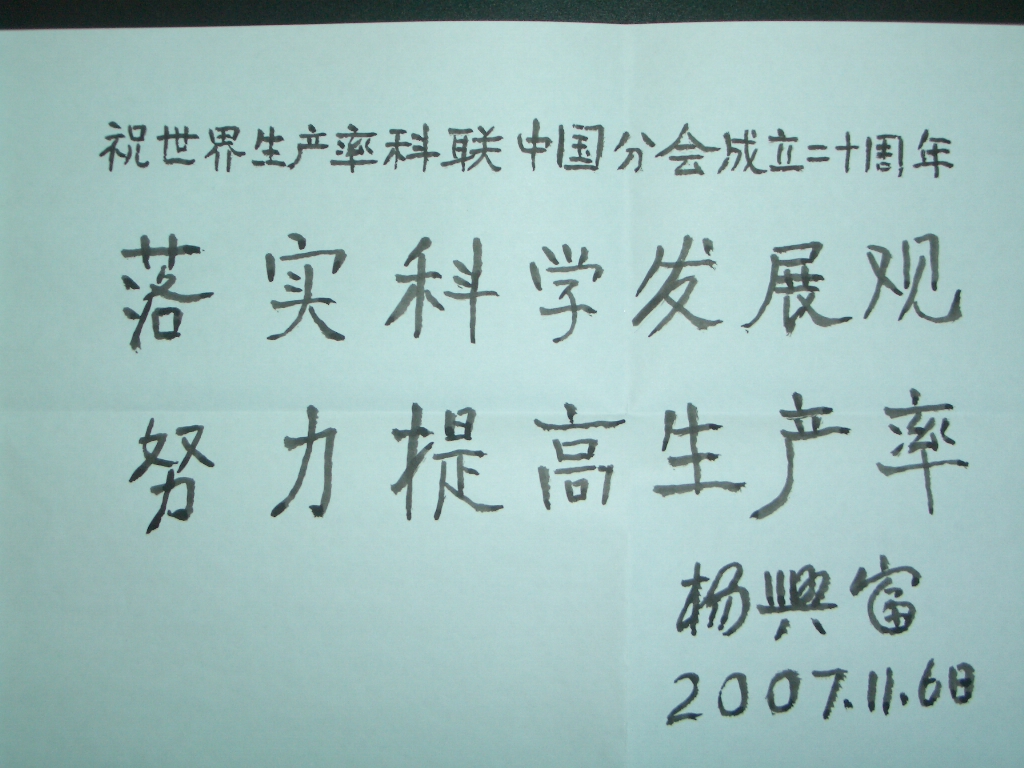 祝世界生产率科联中国分会成立二十周年
落实科学发展观
努力提高生产率
杨興富
2007.11.6日